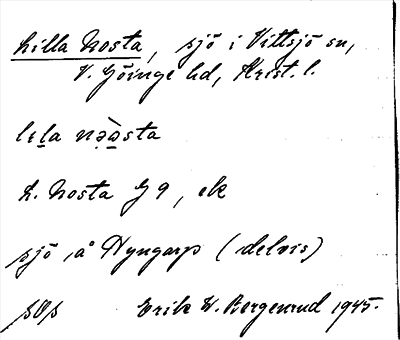 Lilla Nosta, sjö i Vittsjö sn,
V. Göinge hd, Krist. l.
lila nə̀ɑsta
L. Nosta G 9, ek
sjö å Nyngarp (delvis)
Erik W. Bergenrud 1945.